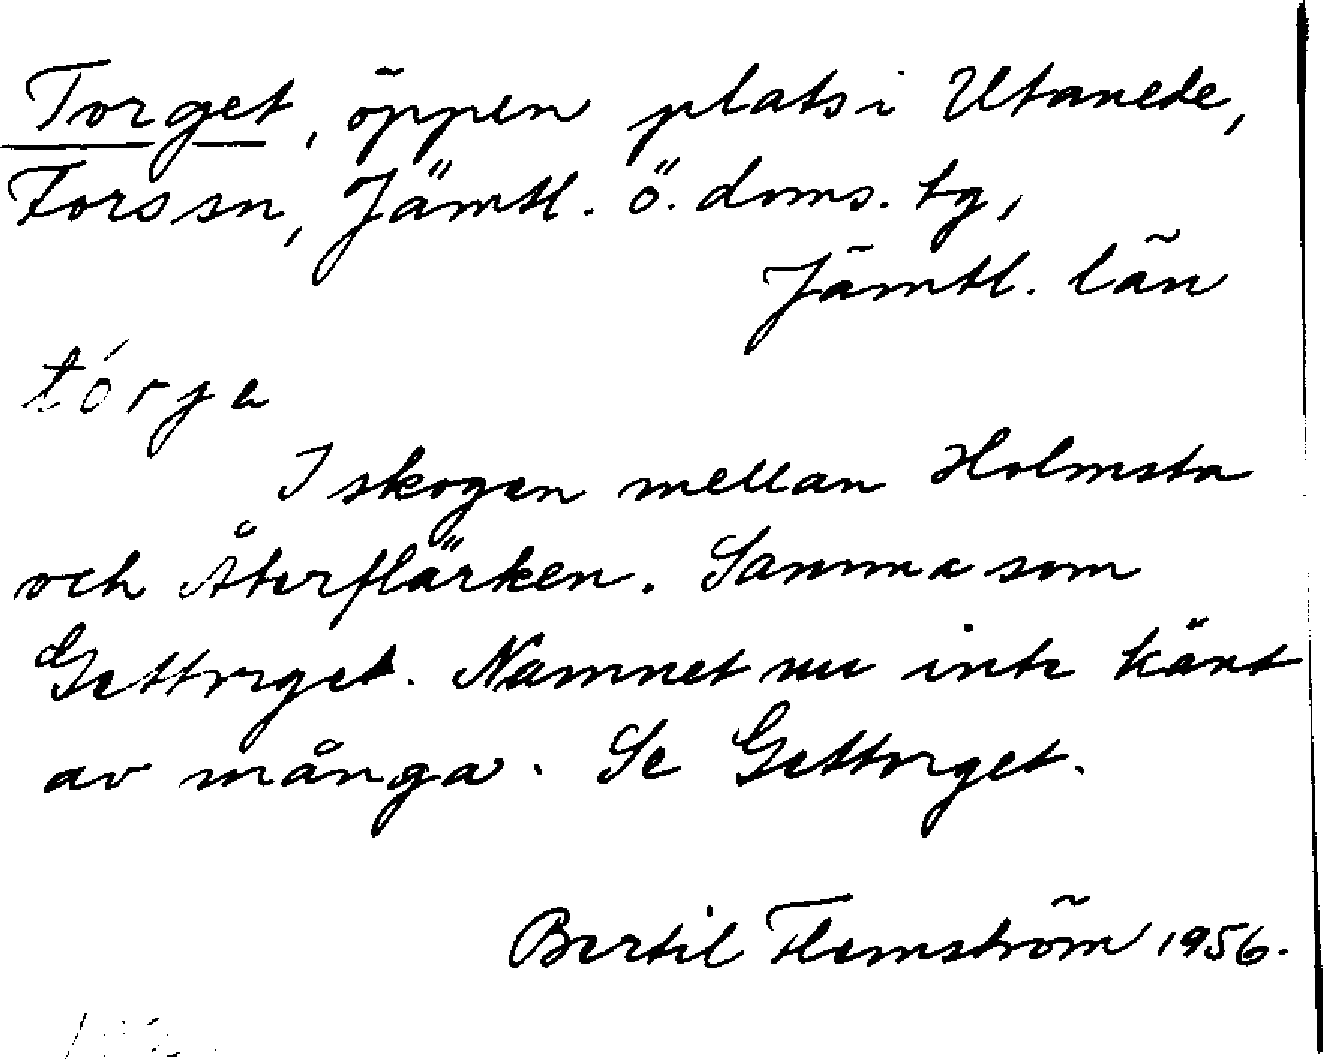 Torget, öppen plats i Utanede,
Fors sn, Jämtl. ö. doms. tg,
Jämtl. län
tórja
I skogen mellan Holmsta
och Återflärken. Samma som
Gettorget. Namnet nu inte känt
av många. Se Gettorget.
Bertil Flemström 1956.